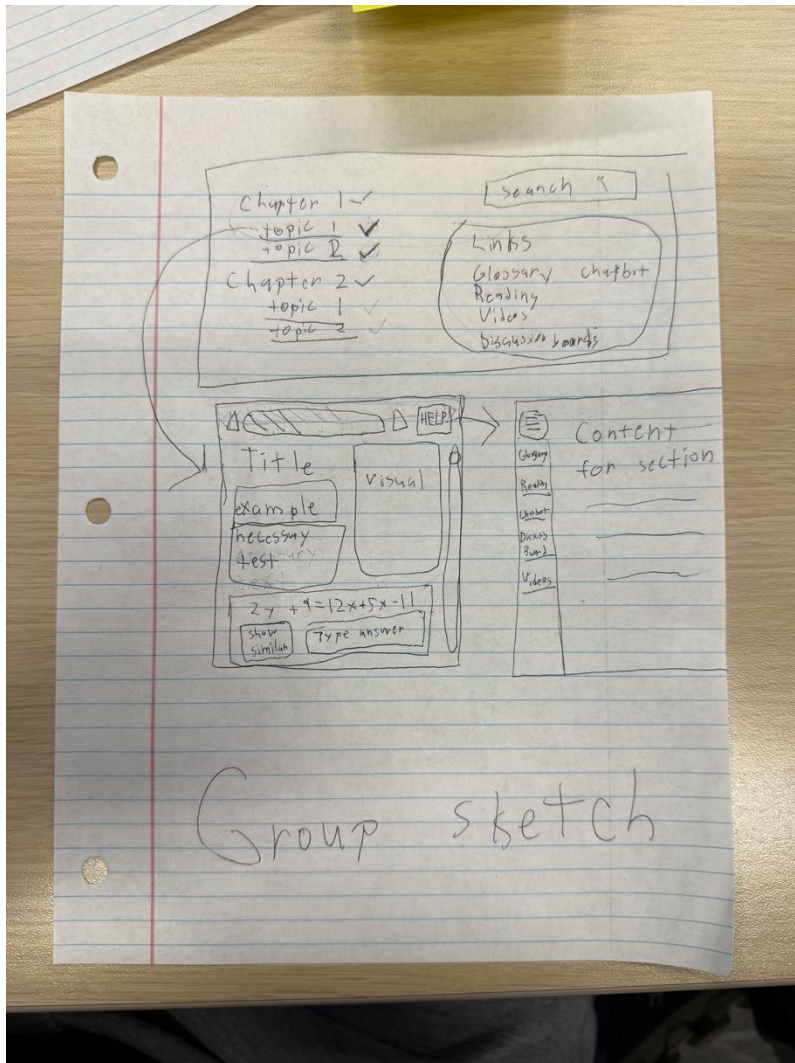 Chapter 1
topic 1
topic 2
Chapter 2
topic 1
topic 2
search
Links
Glossary chatbot
Reading
Videos
Discussion boards
HELP!
Title
example
necessary
test
Visual
2y + 9 = 12x + 5x - 11
show
similar
Type answer
Content
for section
Glossary
Reading
Chatbot
Discuss
Board
Videos
Group sketch